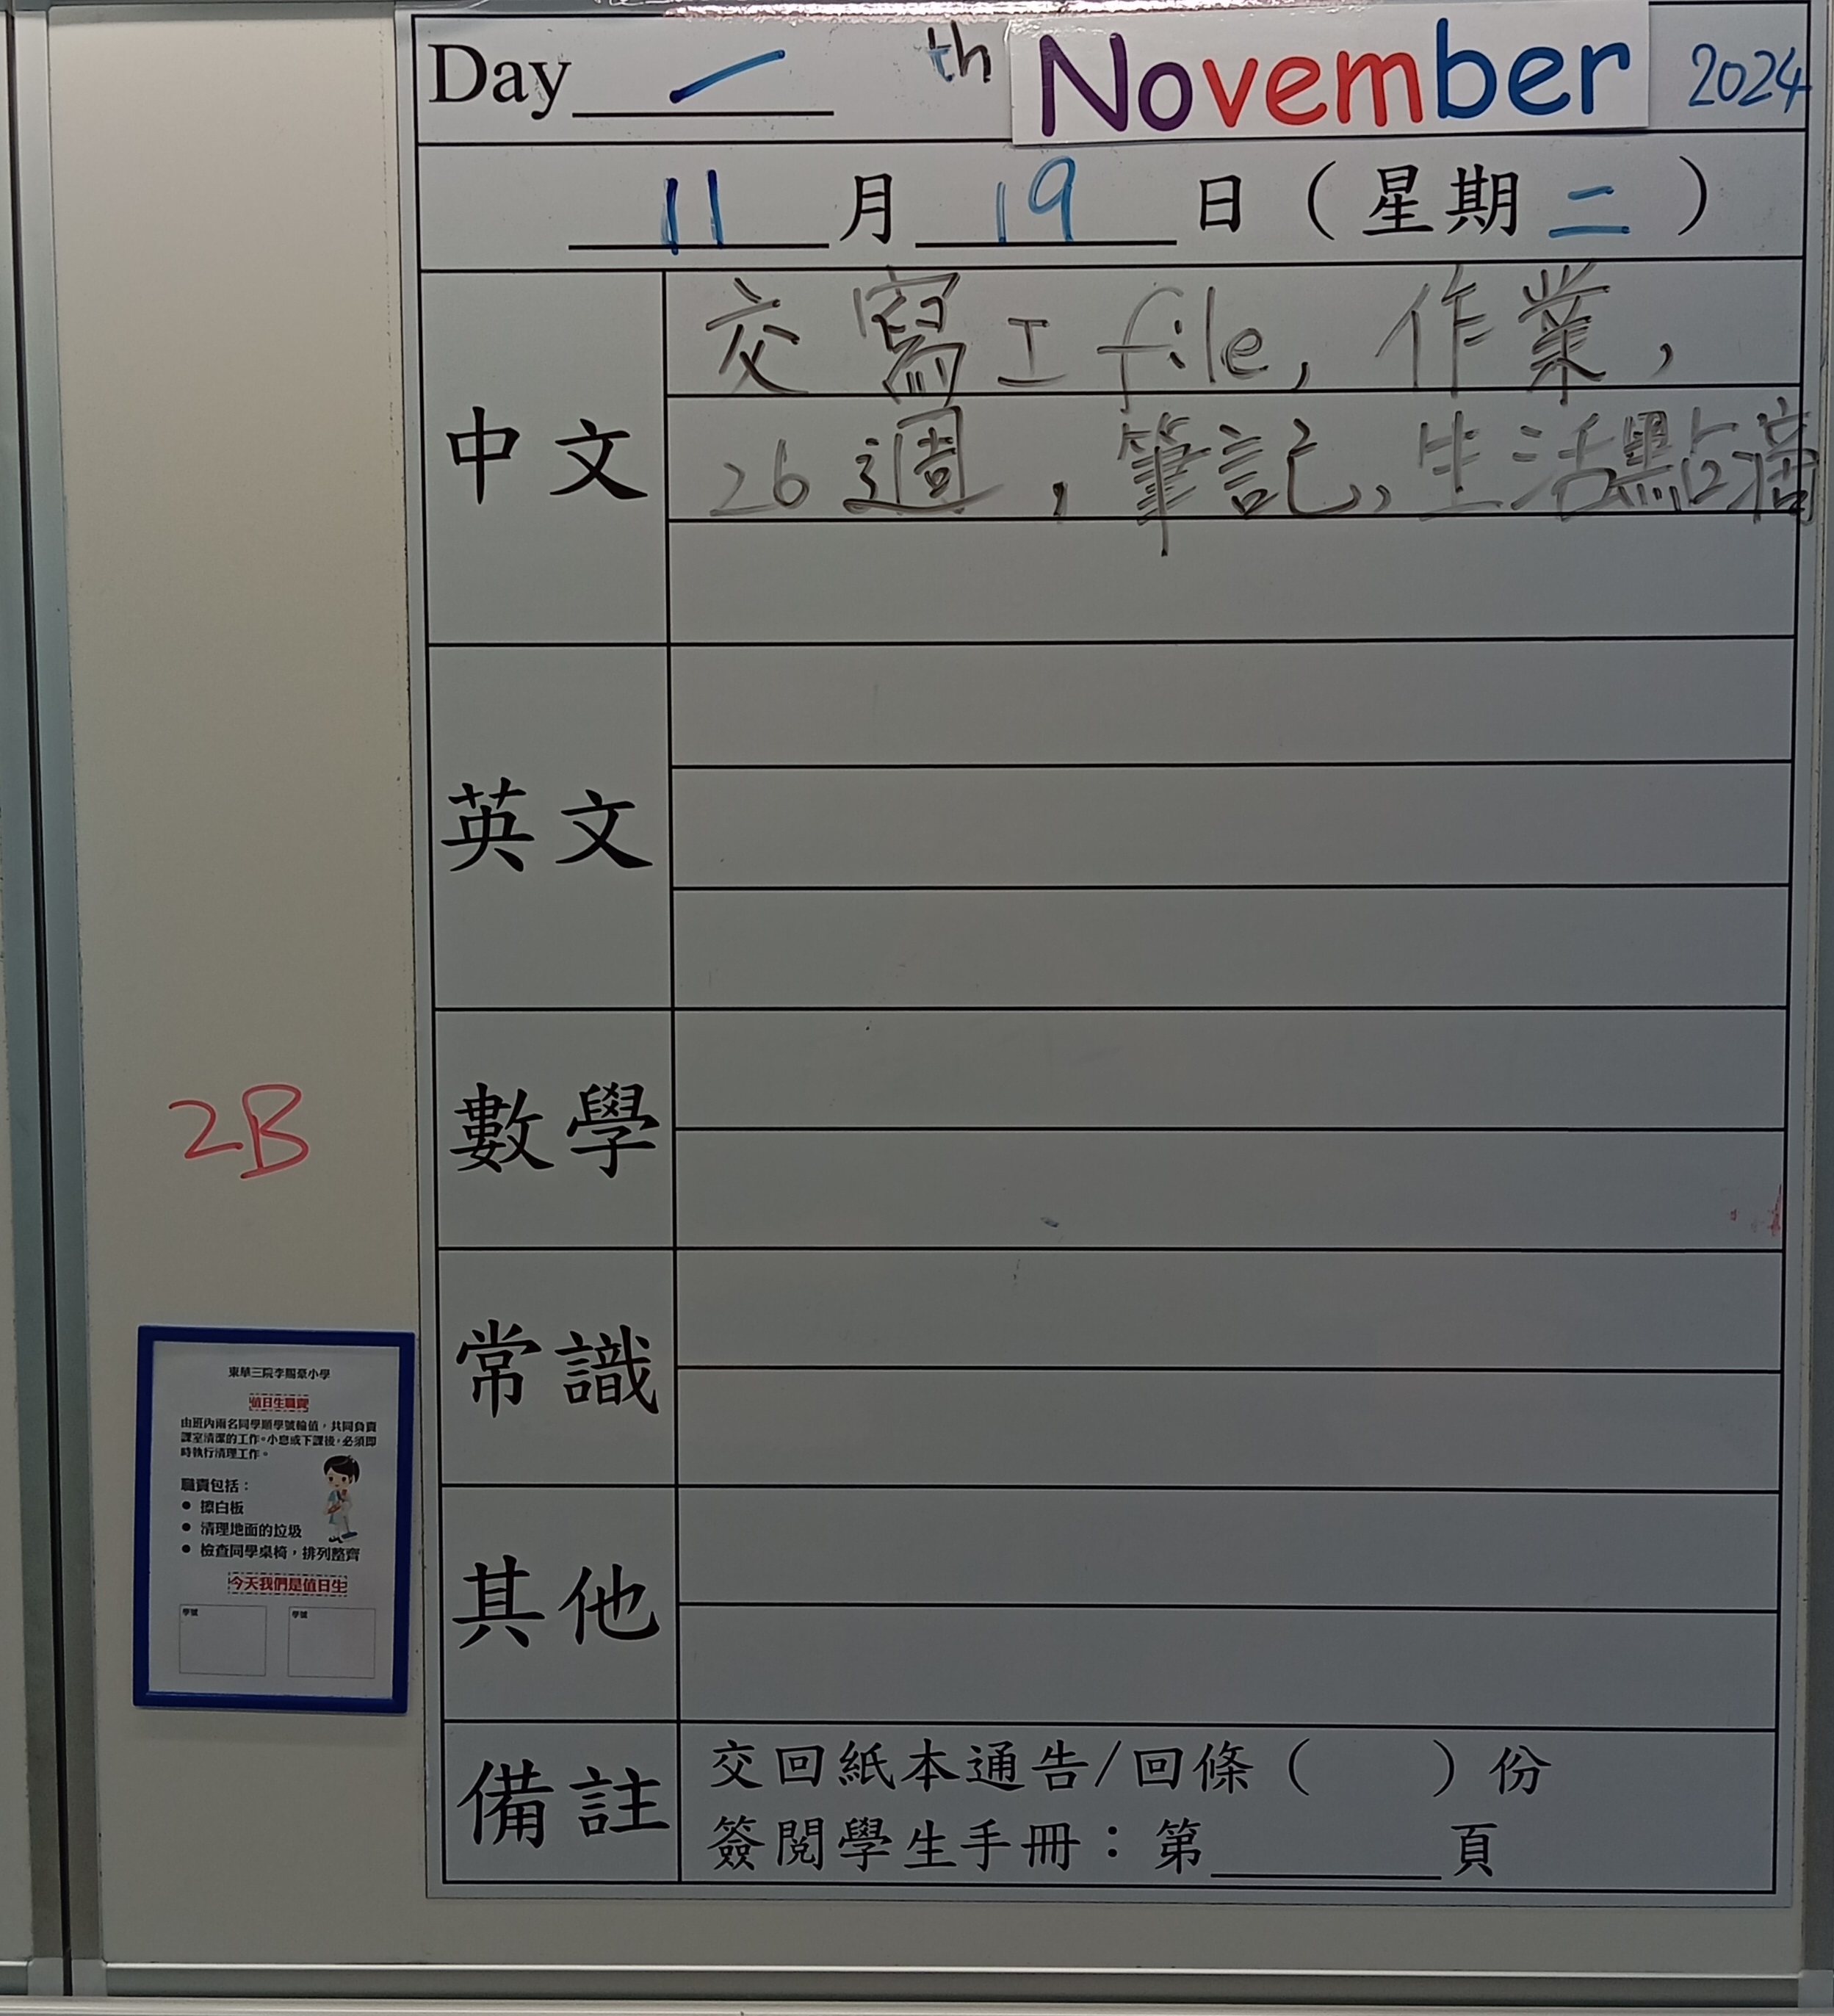 Day / th November 2024
11 月 19 日 (星期 二)
中文
交寫工file, 作業,
26週, 筆記, 生活點滴
英文
數學
2B
常識
其他
備註
交回紙本通告/回條( )份
簽閱學生手冊：第______頁
東華三院李賜豪小學
值日生職責
由班內兩名同學順學號輪值，共同負責
課室清潔的工作。小息或下課後，必須即
時執行清理工作。
職責包括：
● 擦白板
● 清理地面的垃圾
● 檢查同學桌椅，排列整齊
今天我們是值日生
學號 學號